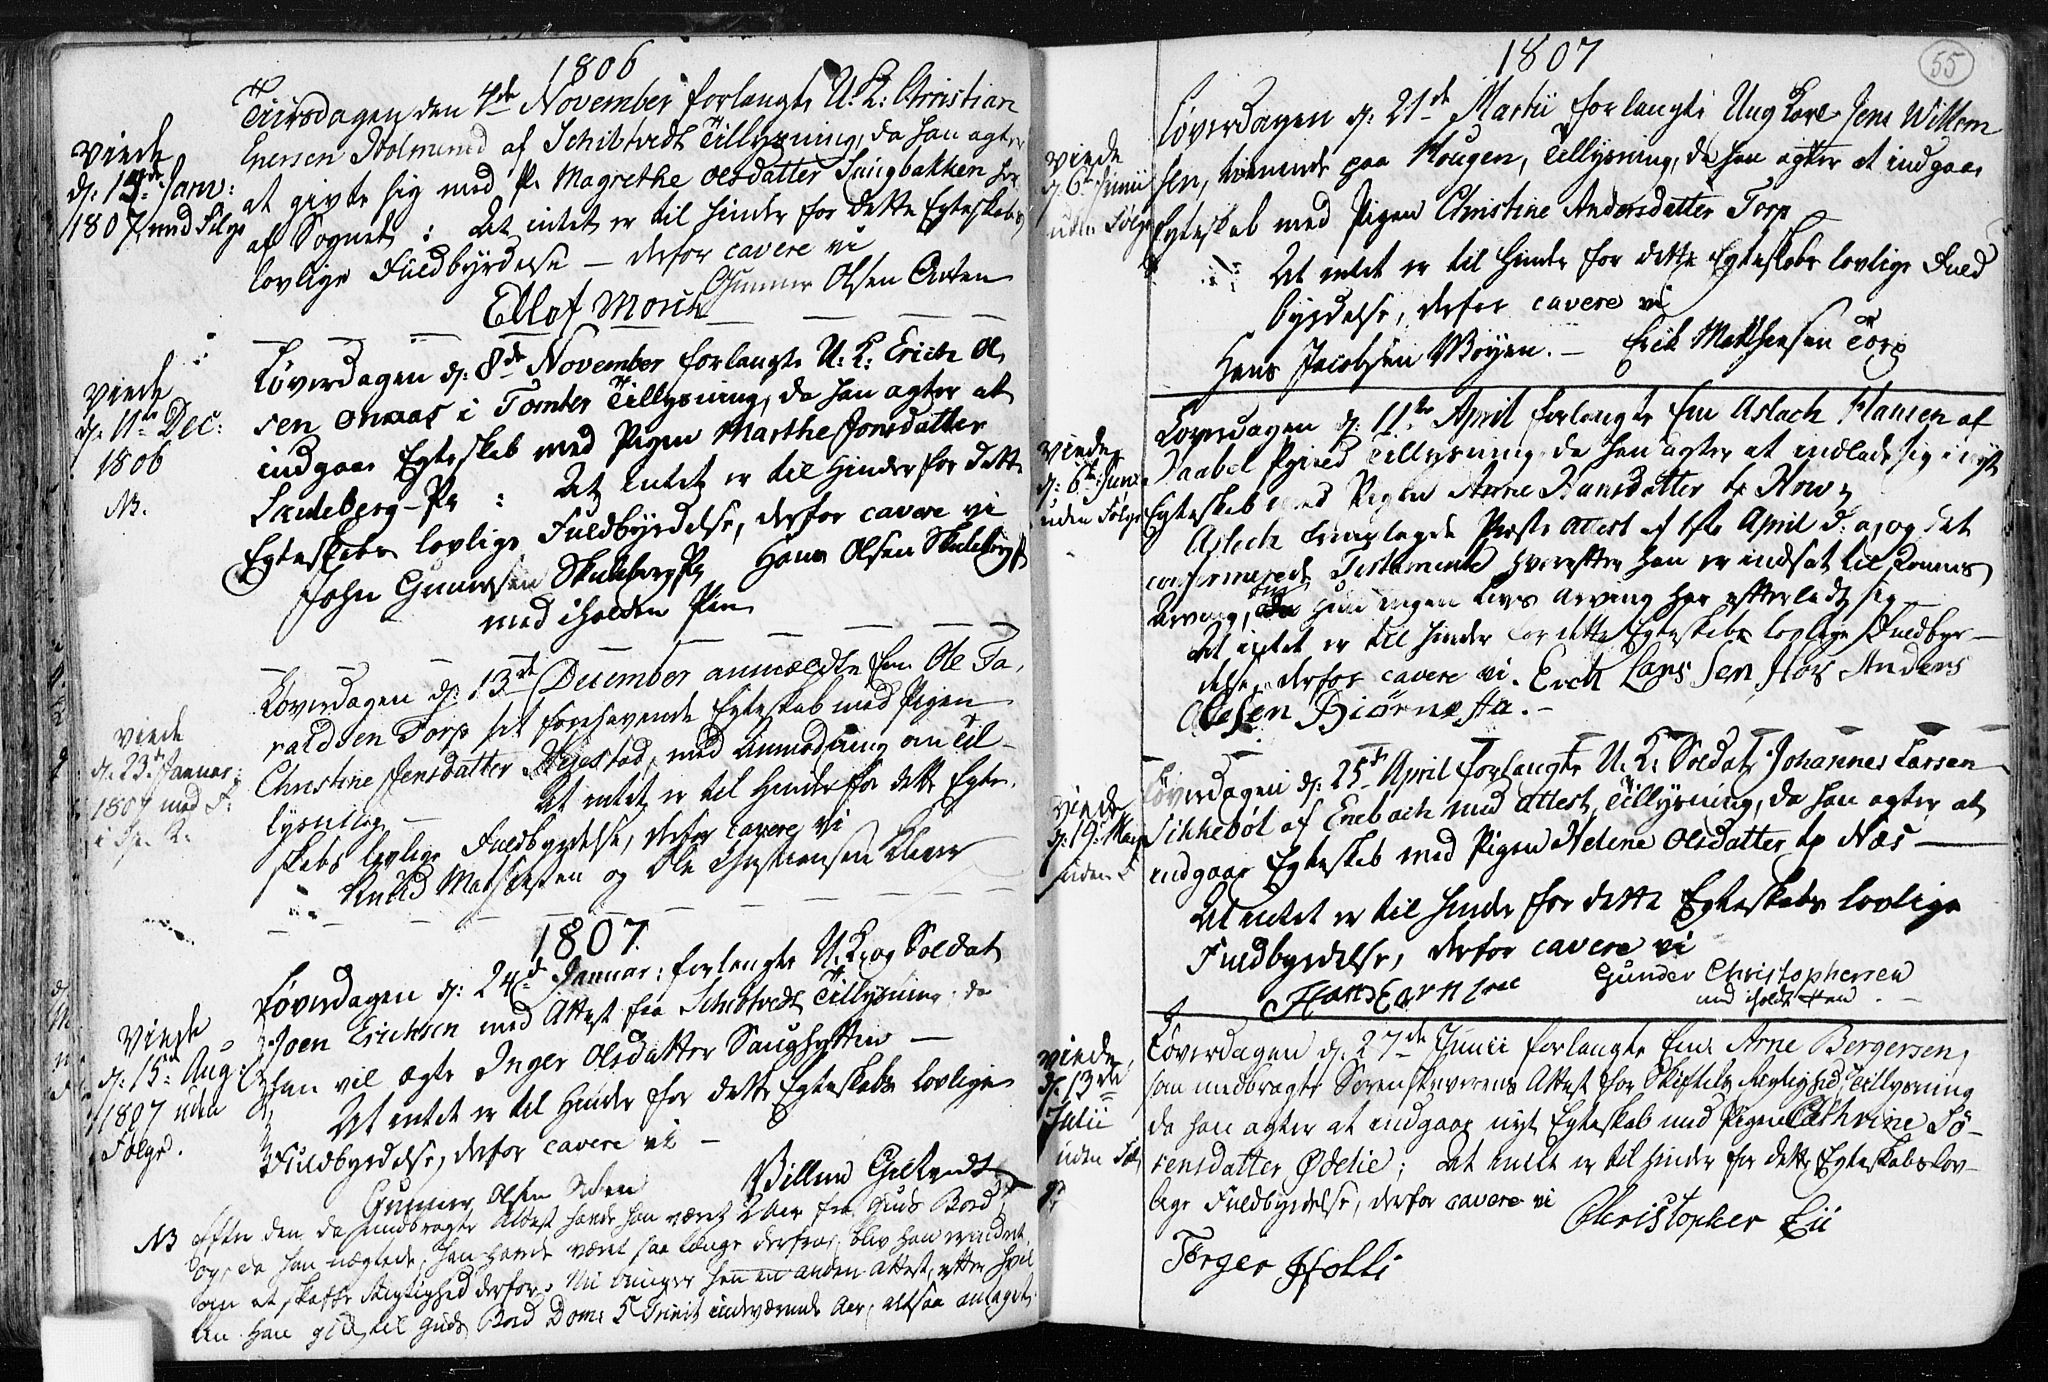 1806
Tiirsdagen den 4de November forlangte U: K: Christian
Enersen Holmend af Schibtvedt Tillysning, da han agter
at givte sig med P. Magrethe olsdatter Saugbakken her
af Sognet : Det intet er til Hinder for dette Egteskabs
lovlige Fuldbyrdelse — derfor cavere vi
Gunner Olsen
Ellof Morch
viede
d: Janv:
1807 med Følge
Løverdagen d: 8de November forlangte U: K: Erich Ol
sen i Tomter Tillysning, da han agter at
indgaae Egteskab med Pigen Marthe Jonsdatter
Skuleberg-Pe : Det intet er til Hinder for dette
Egteskabs lovlige Fuldbyrdelse, derfor cavere vi
John Gunersen Skuleberg Pe Hans Olsen Skuleberg
med iholden Pen
viede
d: 11te Dec:
1806
N.
Løverdagen d: 13de December anmeldte Ole Ta,
raldsen Torp sit forehavende Egteskab med Pigen
Christine Jensdatter med Anmodning om Til-
lysning — Det intet er til Hinder for dette Egte,
skabs lovlige Fuldbyrdelse, derfor cavere vi
Knud Mathiesen og Ole Christiensen
viede
d. 23de Januar:
1807 med F:
i K.
1807
Løverdagen d: 24de Januar: forlangte U. K. og Soldat
Joen Erichsen med Attest fra Schibtvedt Tillysning, da
han vil ægte Inger Olsdatter Saughytten —
Det intet er til Hinder for dette Egteskabs lovlige
Fuldbyrdelse, derfor cavere vi —
Gunner Olsen
Villum
viede
d: 15de Aug:
1807 uden
Følge.
NB efter den, da hand bragte Attest havde han været 2 Aar fra Guds Bord
og, da han nægtede, han havde været saa længe derfra, blev han
om at skaffe Rigtighed derfor. Nu bringer han en anden attest, efter hvil
ken han gik til Guds Bord Dom: 5 Trinit: indeværende Aar, altsaa antaget.
1807
55
Løverdagen d: 21de Martii forlangte Ung Karl Jens Willem
sen, tienende paa Hougen, Tillysning, da han agter at indgaae
Egteskab med Pigen Christine Andersdatter Torp
Det intet er til Hinder for dette Egteskabs lovlige Fuld
byrdelse, derfor cavere vi
Hans Jacobsen Erik Mathiesen Torp
viede
d. 6te Junii
uden Følge
Løverdagen d: 11te April forlangte Em Aslach Hansen af
Haabel Tillysning, da han agter at indlade sig i nyt
Egteskab med Pigen Anne Hansdatter
Aslach fremlagde Præste attest af 1ste April d: a, og det
confirmerede Testamente hvorefter han er indsat til Konens
Arving, hun ingen Livs Arving har efterladt sig —
Det intet er til Hinder for dette Egteskabs lovlige Fuldbyr—
delse, derfor cavere vi. Erick Lars Sen Hos Anders
Olesen Biørnesta. —
viede
d: 6te Junii
uden Følge
Løverdagen d: 25de April forlangte U. K: Soldat Johannes Larsen
Sikkebøl af Enebach med attest, Tillysning, da han agter at
indgaae Egteskab med Pigen Helene Olsdatter Næs —
Det intet er til Hinder for dette Egteskabs lovlige
Fuldbyrdelse, derfor cavere vi
Gunder Christophersen
med iholdt Haand
viede
d: 19:
uden F
Løverdagen d. 27de Junii forlangte Em: Arne Bergersen,
som medbragte Sorenskrverens Attest for Skiftets Rigtighed, Tillysning
da han agter at indgaae nyt Egteskab med Pigen Cathrine Sø-
rensdatter Ødelie; Det intet er til Hinder for dette Egteskabs lov-
lige Fuldbyrdelse, derfor cavere vi
Christopher Lii
Torger Holli
viede
d. 13de
Julii
uden Føl
ge